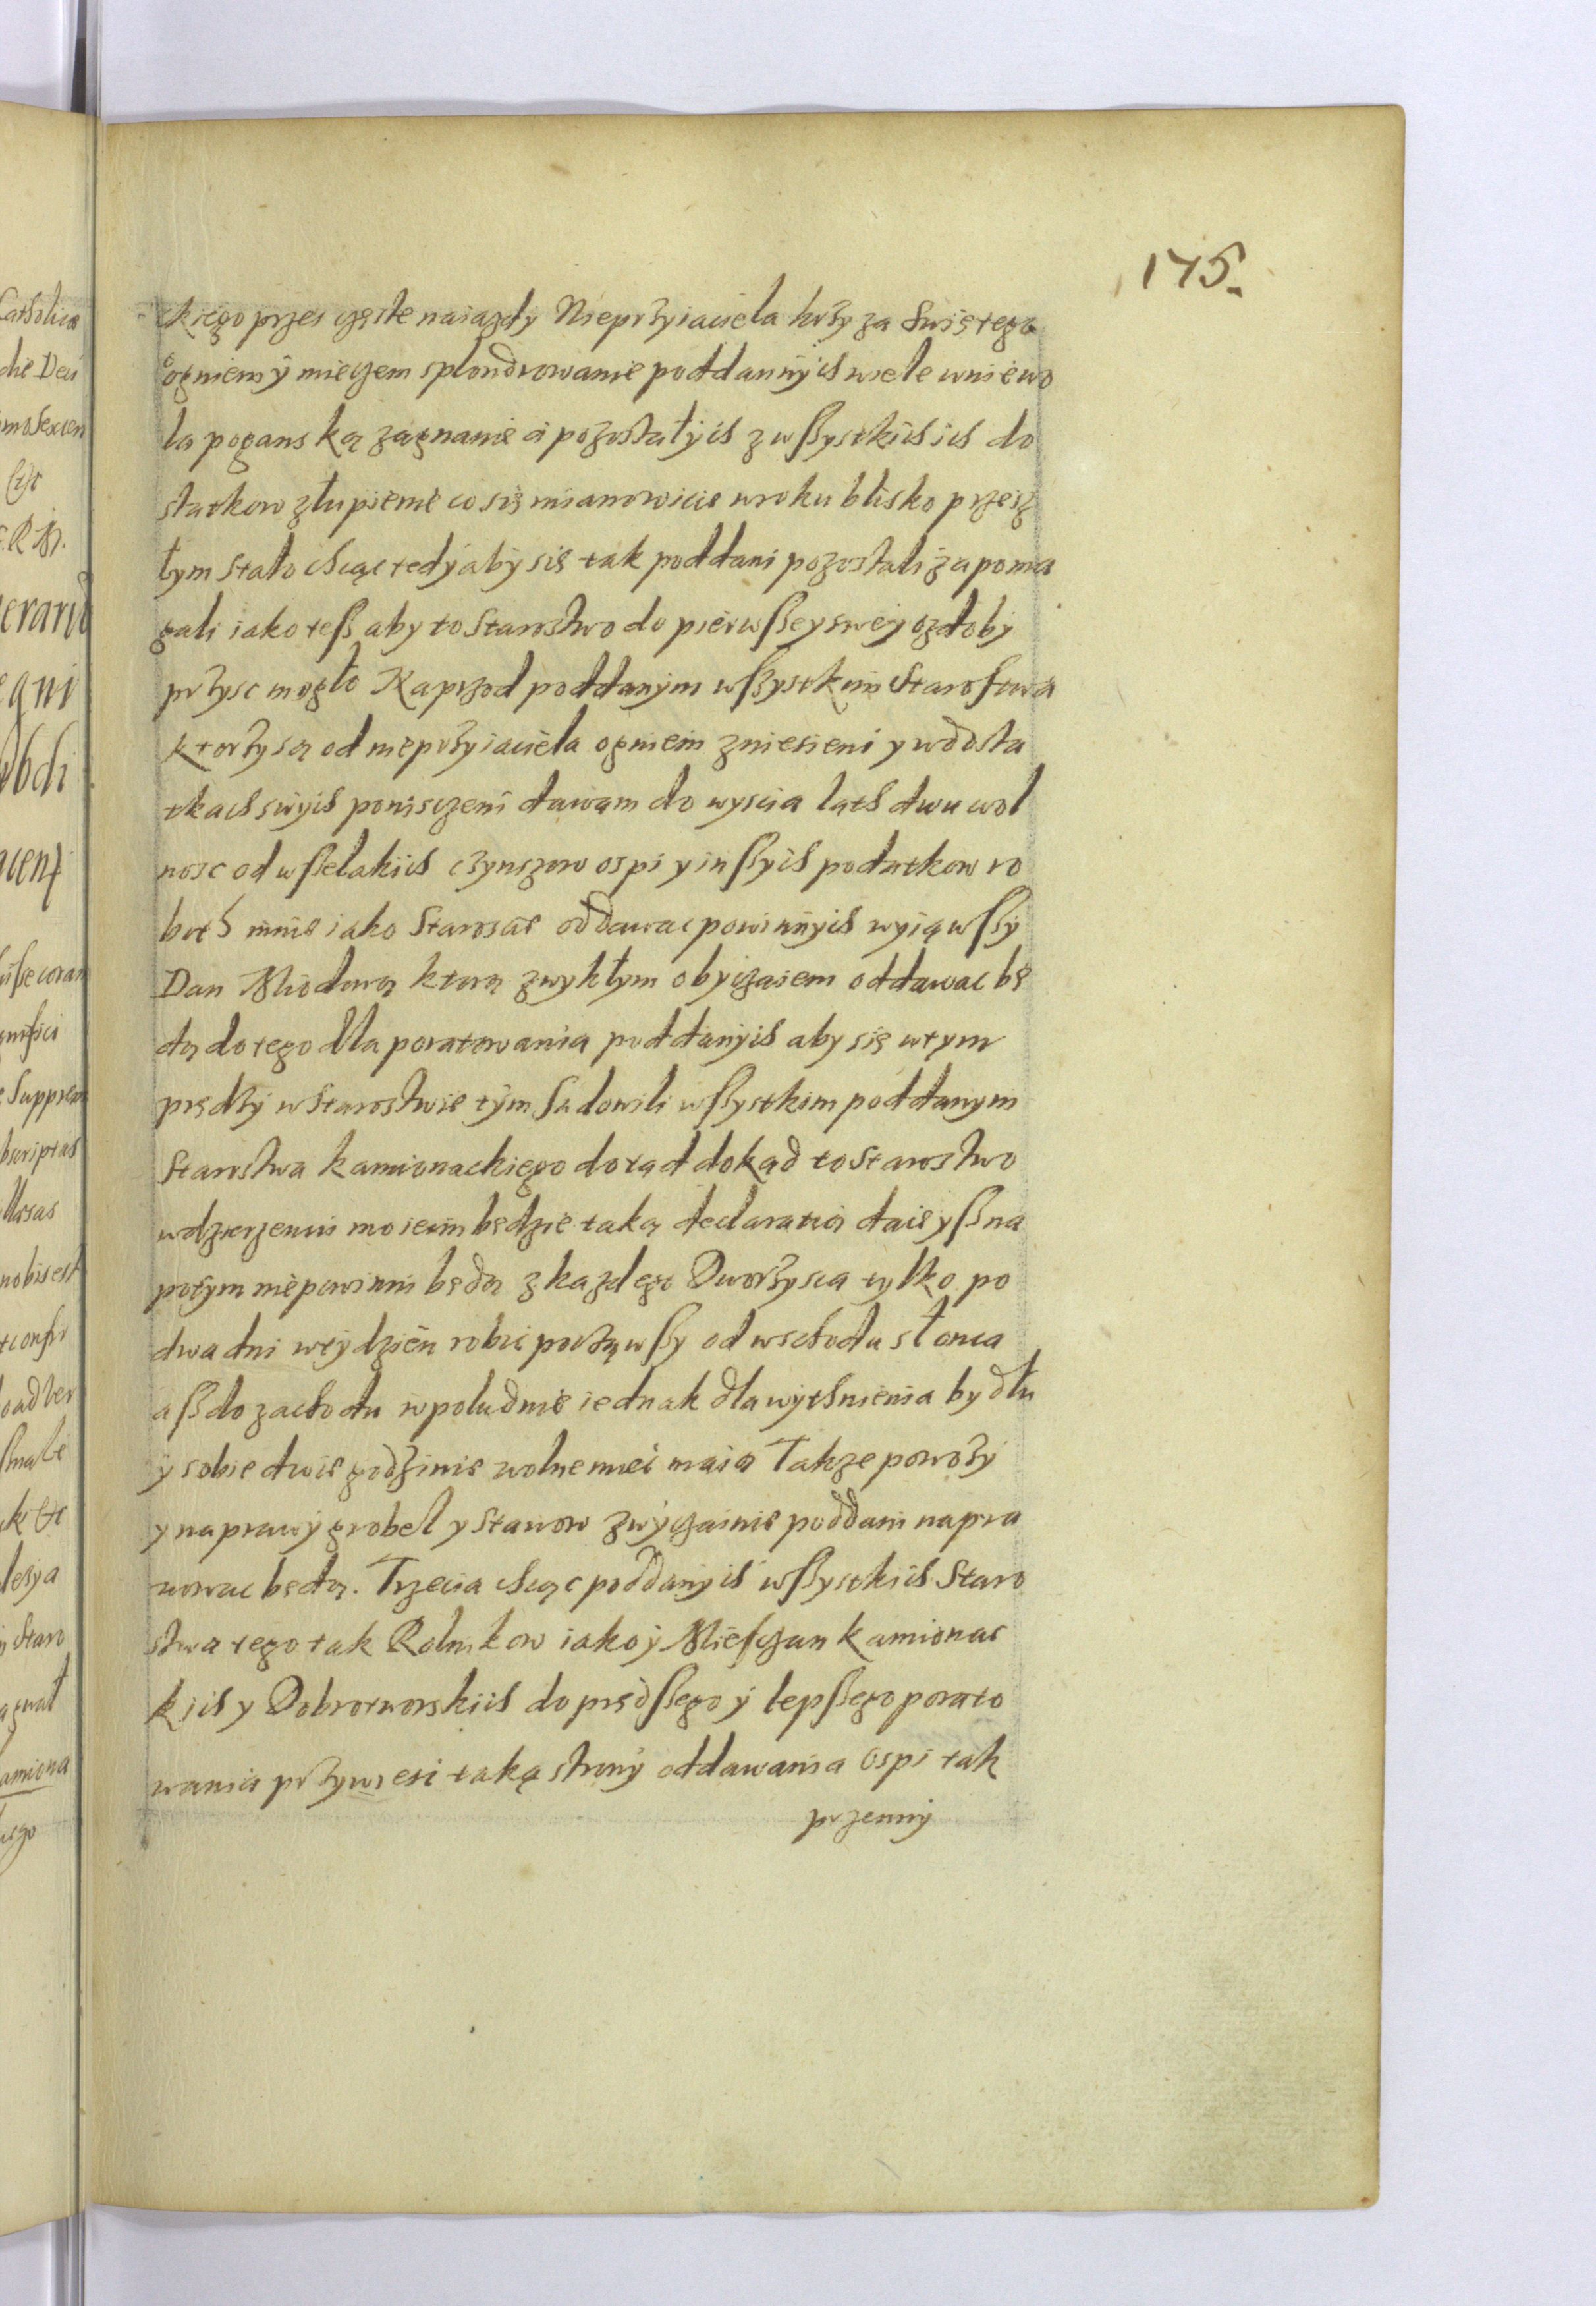 175.
ckiego przes częste naiazdy Nieprżyiaciela krżyza Swiętego
ogniem ÿ mieczem splondrowanie poddannÿch wiele wniewo
la poganską zagnanie a pozostałÿch zwßystkich ich do
statkow złupienie co się mianowicie wroku blisko przesz
łym stało chcąc tedÿ abÿ się tak poddani pozostali zapoma
gali iako teß aby to Starostwo do pierwßey swey ozdobÿ
prżysc mogło Naprzod poddanÿm wßystkim Starostwa
ktorży są od nieprżyiaciela ogniem zniesieni y wdosta
tkach swÿch poniszczeni dawam do wyscia lath dwu wol
nosc od wßelakich cżynszow ospi y inßych podatkow ro
both mnie iako Staroscie oddawac powinnÿch wyiąwßÿ
Dan Miodową ktorą zwykłym obyczaiem oddawac bę
dą do tego dla poratowania poddanÿch aby się wtym
prędżÿ w Starostwie tÿm Sadowili wßystkim poddanym
Starostwa kamionackiego dotąd dokąd to Starostwo
wdzierzeniu moiem będzie taką declaratią daię yß na
potÿm niepowinni będą zkazdego Dworżysca tylko po
dwa dni wtÿdzień robic pocżąwßy od wschodu słonca
aß do zachodu wpoludnie iednak dla wÿthnienia bydłu
ÿ sobie dwie godżinie wolne miec maią Takze powożÿ
y naprawÿ grobel y Stawow zwÿczainie poddani napra
wowac będą. Trzecia chcąc poddanych wßystkich Staro
stwa tego tak Rolnikow iako ÿ Miesczan kamionac
kich y Dobrotworskich do prędßego ÿ lepßego porato
wania prżywiesc taką stronÿ oddawania Ospi tak
przennÿ